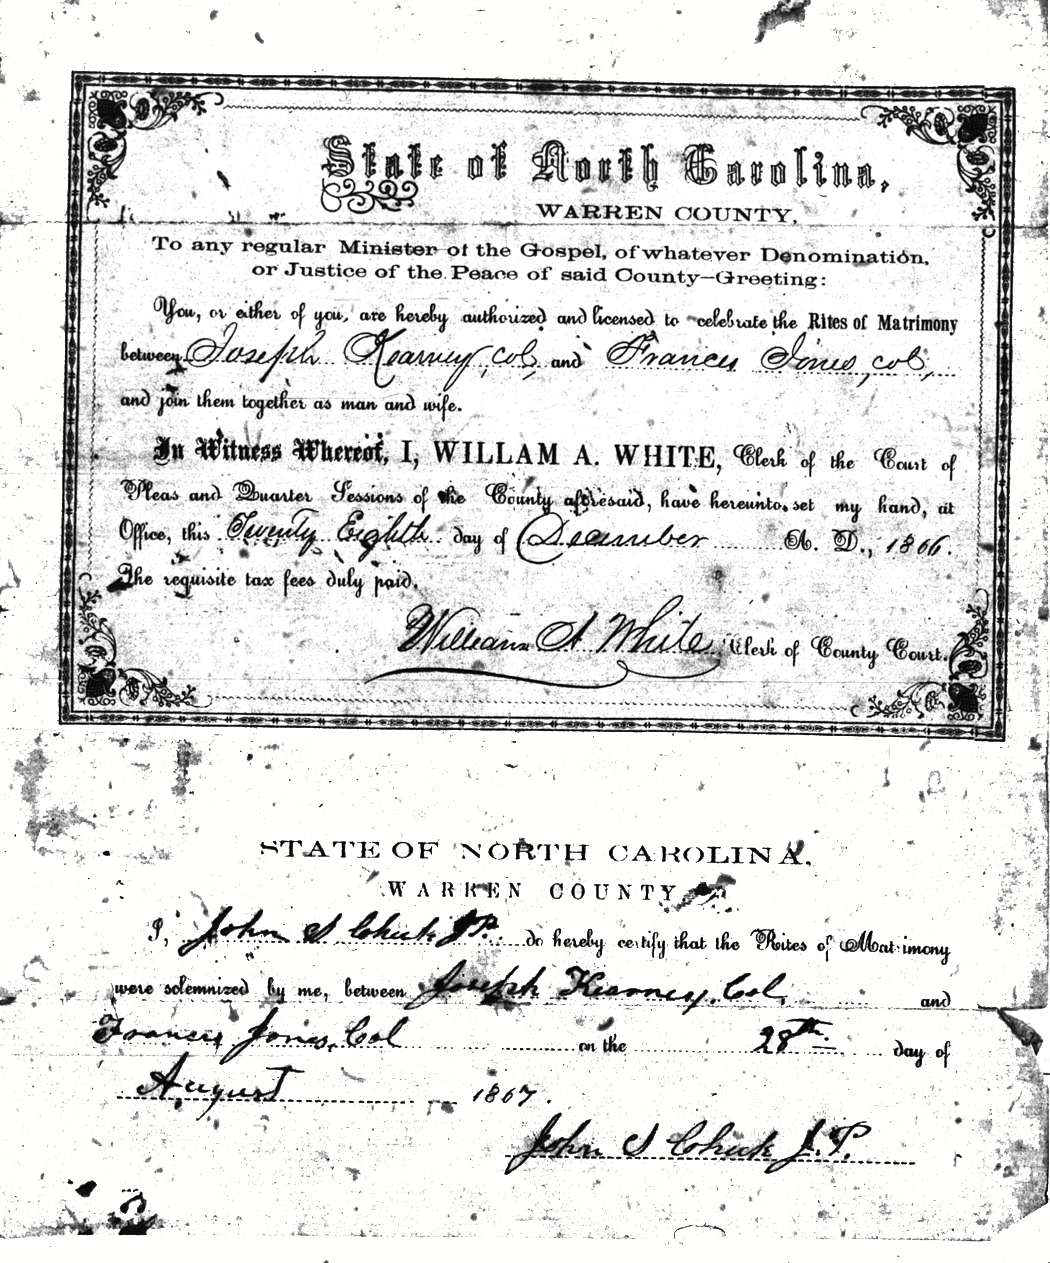 State of North Carolina,
WARREN COUNTY.
To any regular Minister of the Gospel, of whatever Denomination,
or Justice of the Peace of said County—Greeting:
You, or either of you, are hereby authorized and licensed to celebrate the Rites of Matrimony
between Joseph Kearney, col, and Frances Jones, col,
and join them together as man and wife.
In Witness Whereof, I, WILLAM A. WHITE, Clerk of the Court of
Pleas and Quarter Sessions of the County aforesaid, have hereunto set my hand, at
Office, this Twenty Eighth day of December A. D., 1866.
The requisite tax fees duly paid.
William A White Clerk of County Court.
STATE OF NORTH CAROLINA.
WARREN COUNTY
I, John S Cheek J.P. do hereby certify that the Rites of Matrimony
were solemnized by me, between Joseph Kearney, Col, and
Frances Jones, Col on the 28th day of
August 1867.
John S Cheek J.P.